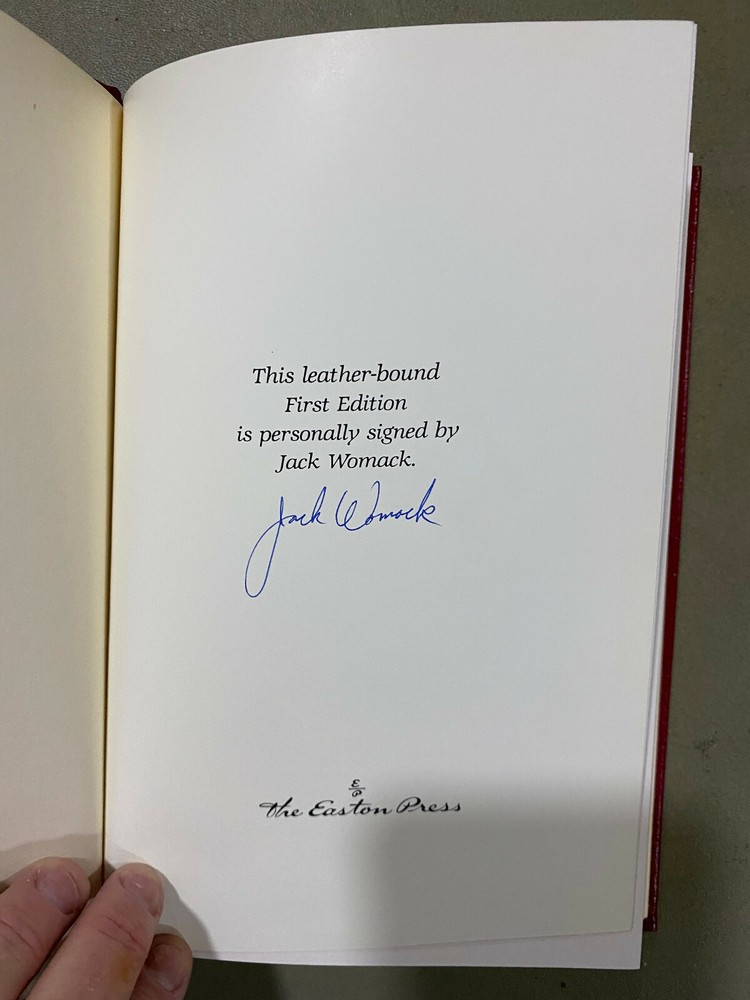 This leather-bound
First Edition
is personally signed by
Jack Womack.
Jack Womack
E/P
The Easton Press